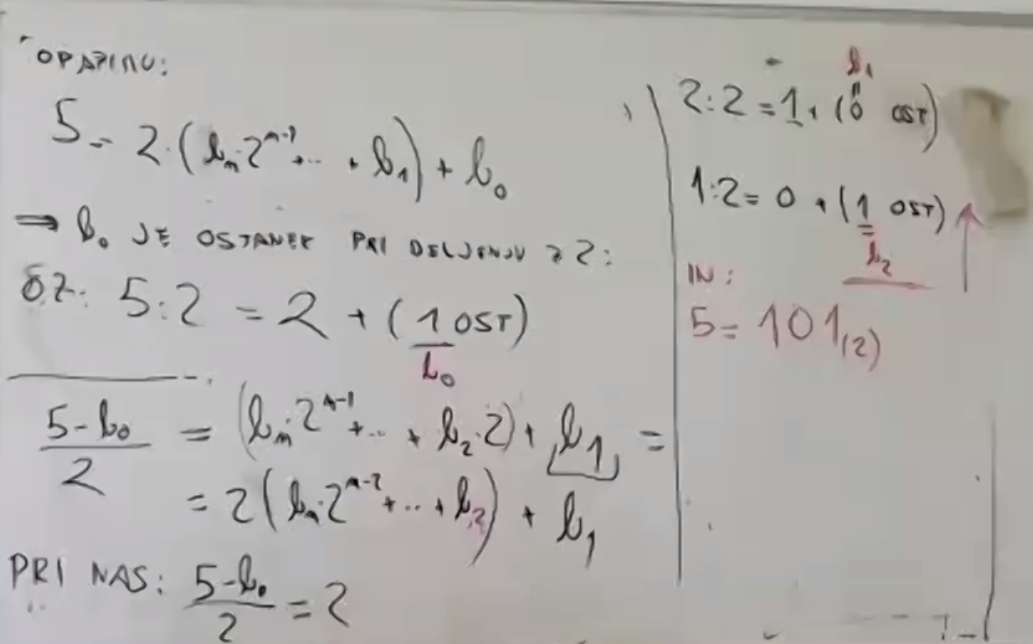 OPAZIMO:
5 = 2·(b_n·2^{n-1}+...+b_1)+b_0
⇒ b_0 JE OSTANEK PRI DELJENJU Z 2:
OZ. 5:2 = 2 + (1 OST)
b_0
(5-b_0)/2 = (b_n·2^{n-1}+...+b_2·2)+b_1 =
= 2(b_n·2^{n-2}+...+b_2)+b_1
PRI NAS: (5-b_0)/2 = 2
b_1
2:2 = 1 + (0 OST)
1:2 = 0 + (1 OST)
b_2
IN:
5 = 101_(2)